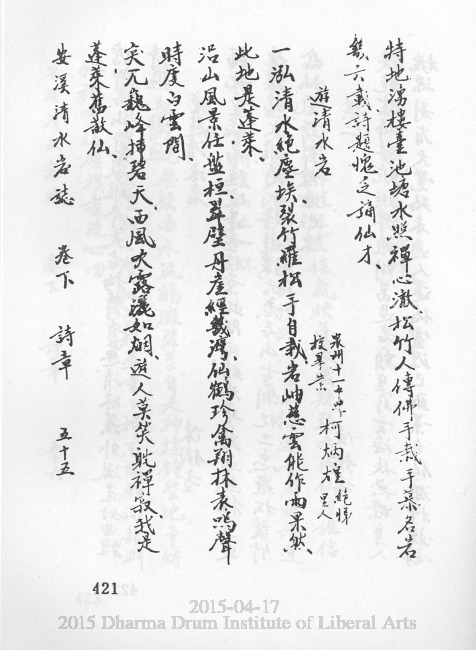 特地湧樓臺池塘水照禪心澈、松竹人傳佛手栽、手慕名岩
幾六載詩題愧乏謫仙才、
游清水岩
泉州十一中學
校畢業 柯炳雄 絕悌里人
一泓清水絕塵埃、裂竹羅松手自栽、岩岫慈雲能作雨果然、
此地是蓬萊、
沿山風景任盤桓、翠壁丹崖經幾灣、仙鶴珍禽翔林表鳴聲
時度白雲間、
突兀巍峰掃碧天、西風吹露灑如烟、遊人莫笑耽禪寂、我是
蓬萊舊散仙、
安溪清水岩誌 卷下 詩章 五十五
421
2015-04-17
2015 Dharma Drum Institute of Liberal Arts